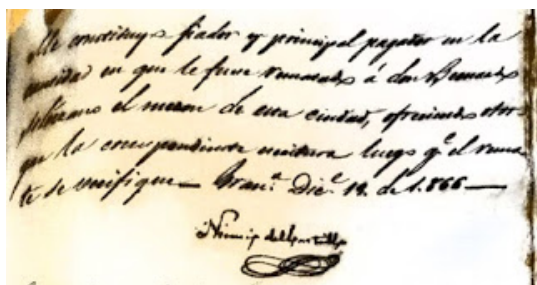 Me constituyo fiador y principal pagador en la
cantidad en que le fuere rematado á don Bernardo
Solórzano el meson de esta ciudad, ofreciendo otor-
gar la correspondiente escritura luego q.e el rema-
te se verifique— Gran.a Dic.e 19. de 1.866—
del Castillo